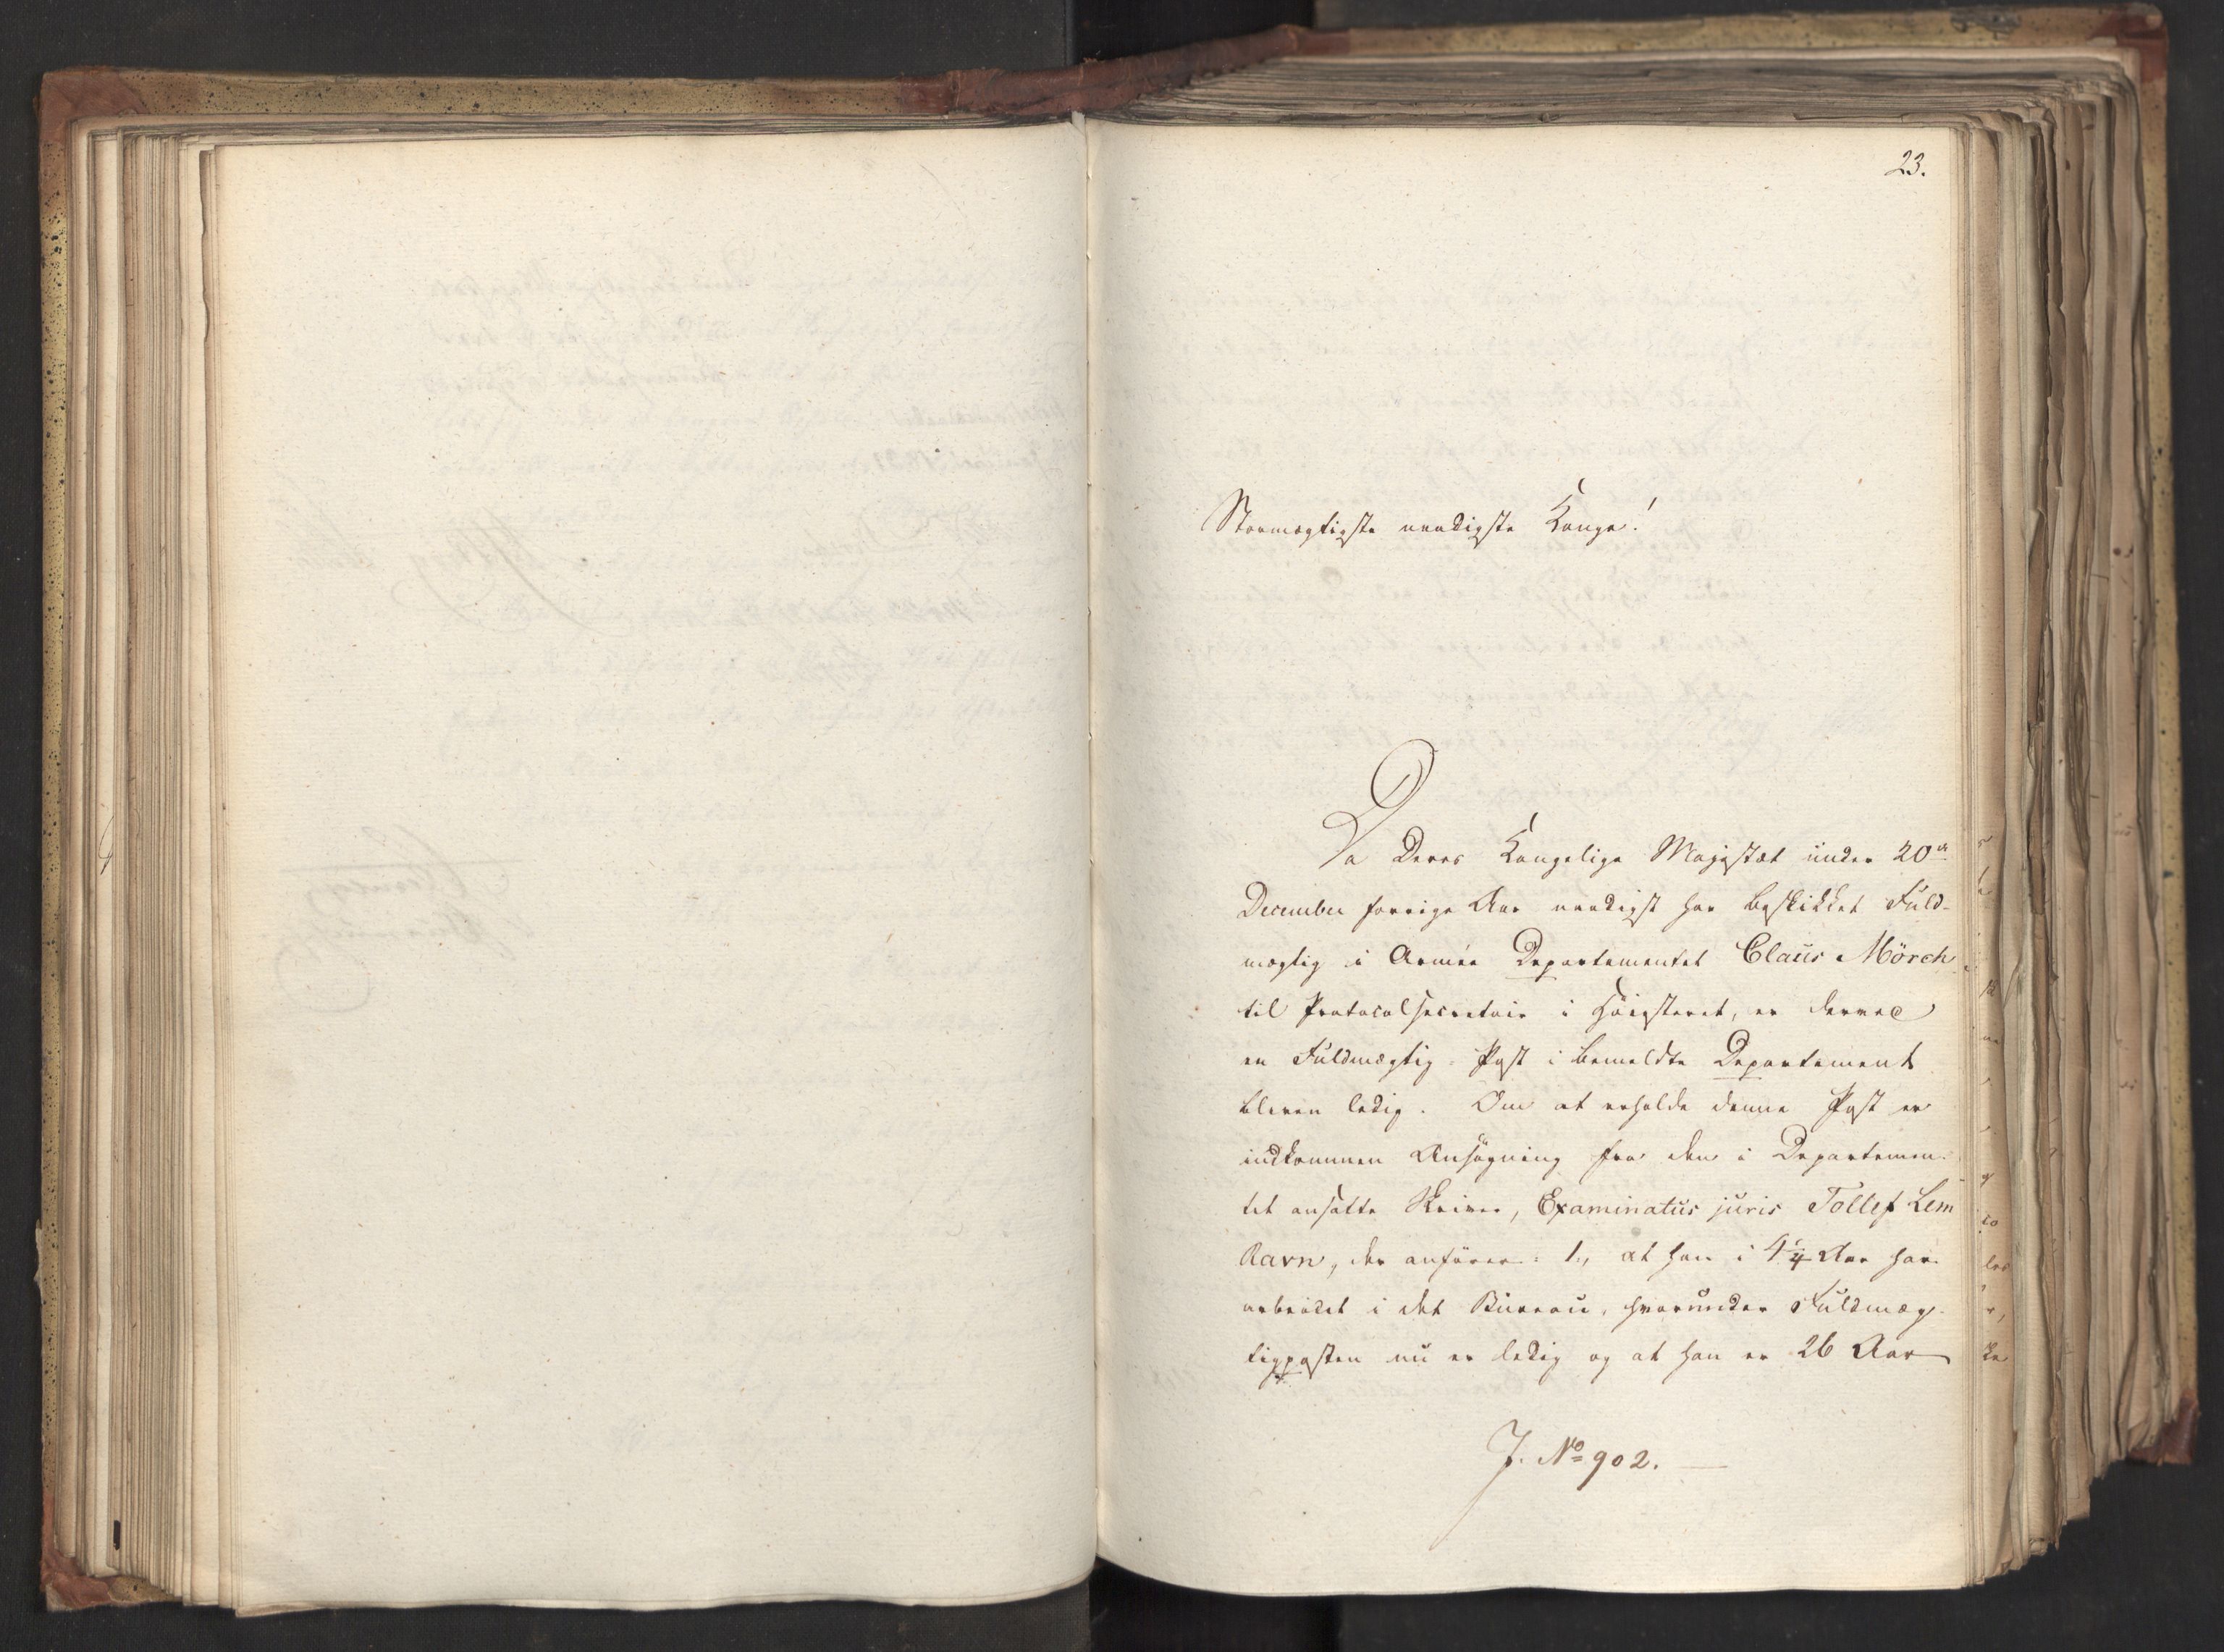 23.
Stormægtigste naadigste Konge!
Da Deres Kongelige Majestæt under 20de
December forrige Aar naadigst har beskikket Fuld-
mægtig i Armée Departementet Claus Mörch
til Protocolsecretair i Höiesteret, er derved
en Fuldmægtig-Post i bemeldte Departement
bleven ledig. Om at erholde denne Post er
indkommen Ansøgning fra den i Departemen-
tet ansatte Skriver, Examinatus juris Tollef Lem
Ravn, der anförer: 1., at han i 4 1/4 Aar har
arbeidet i det Bureau, hvorunder Fuldmæg-
tigposten nu er ledig og at han er 26 Aar
J. No 902.